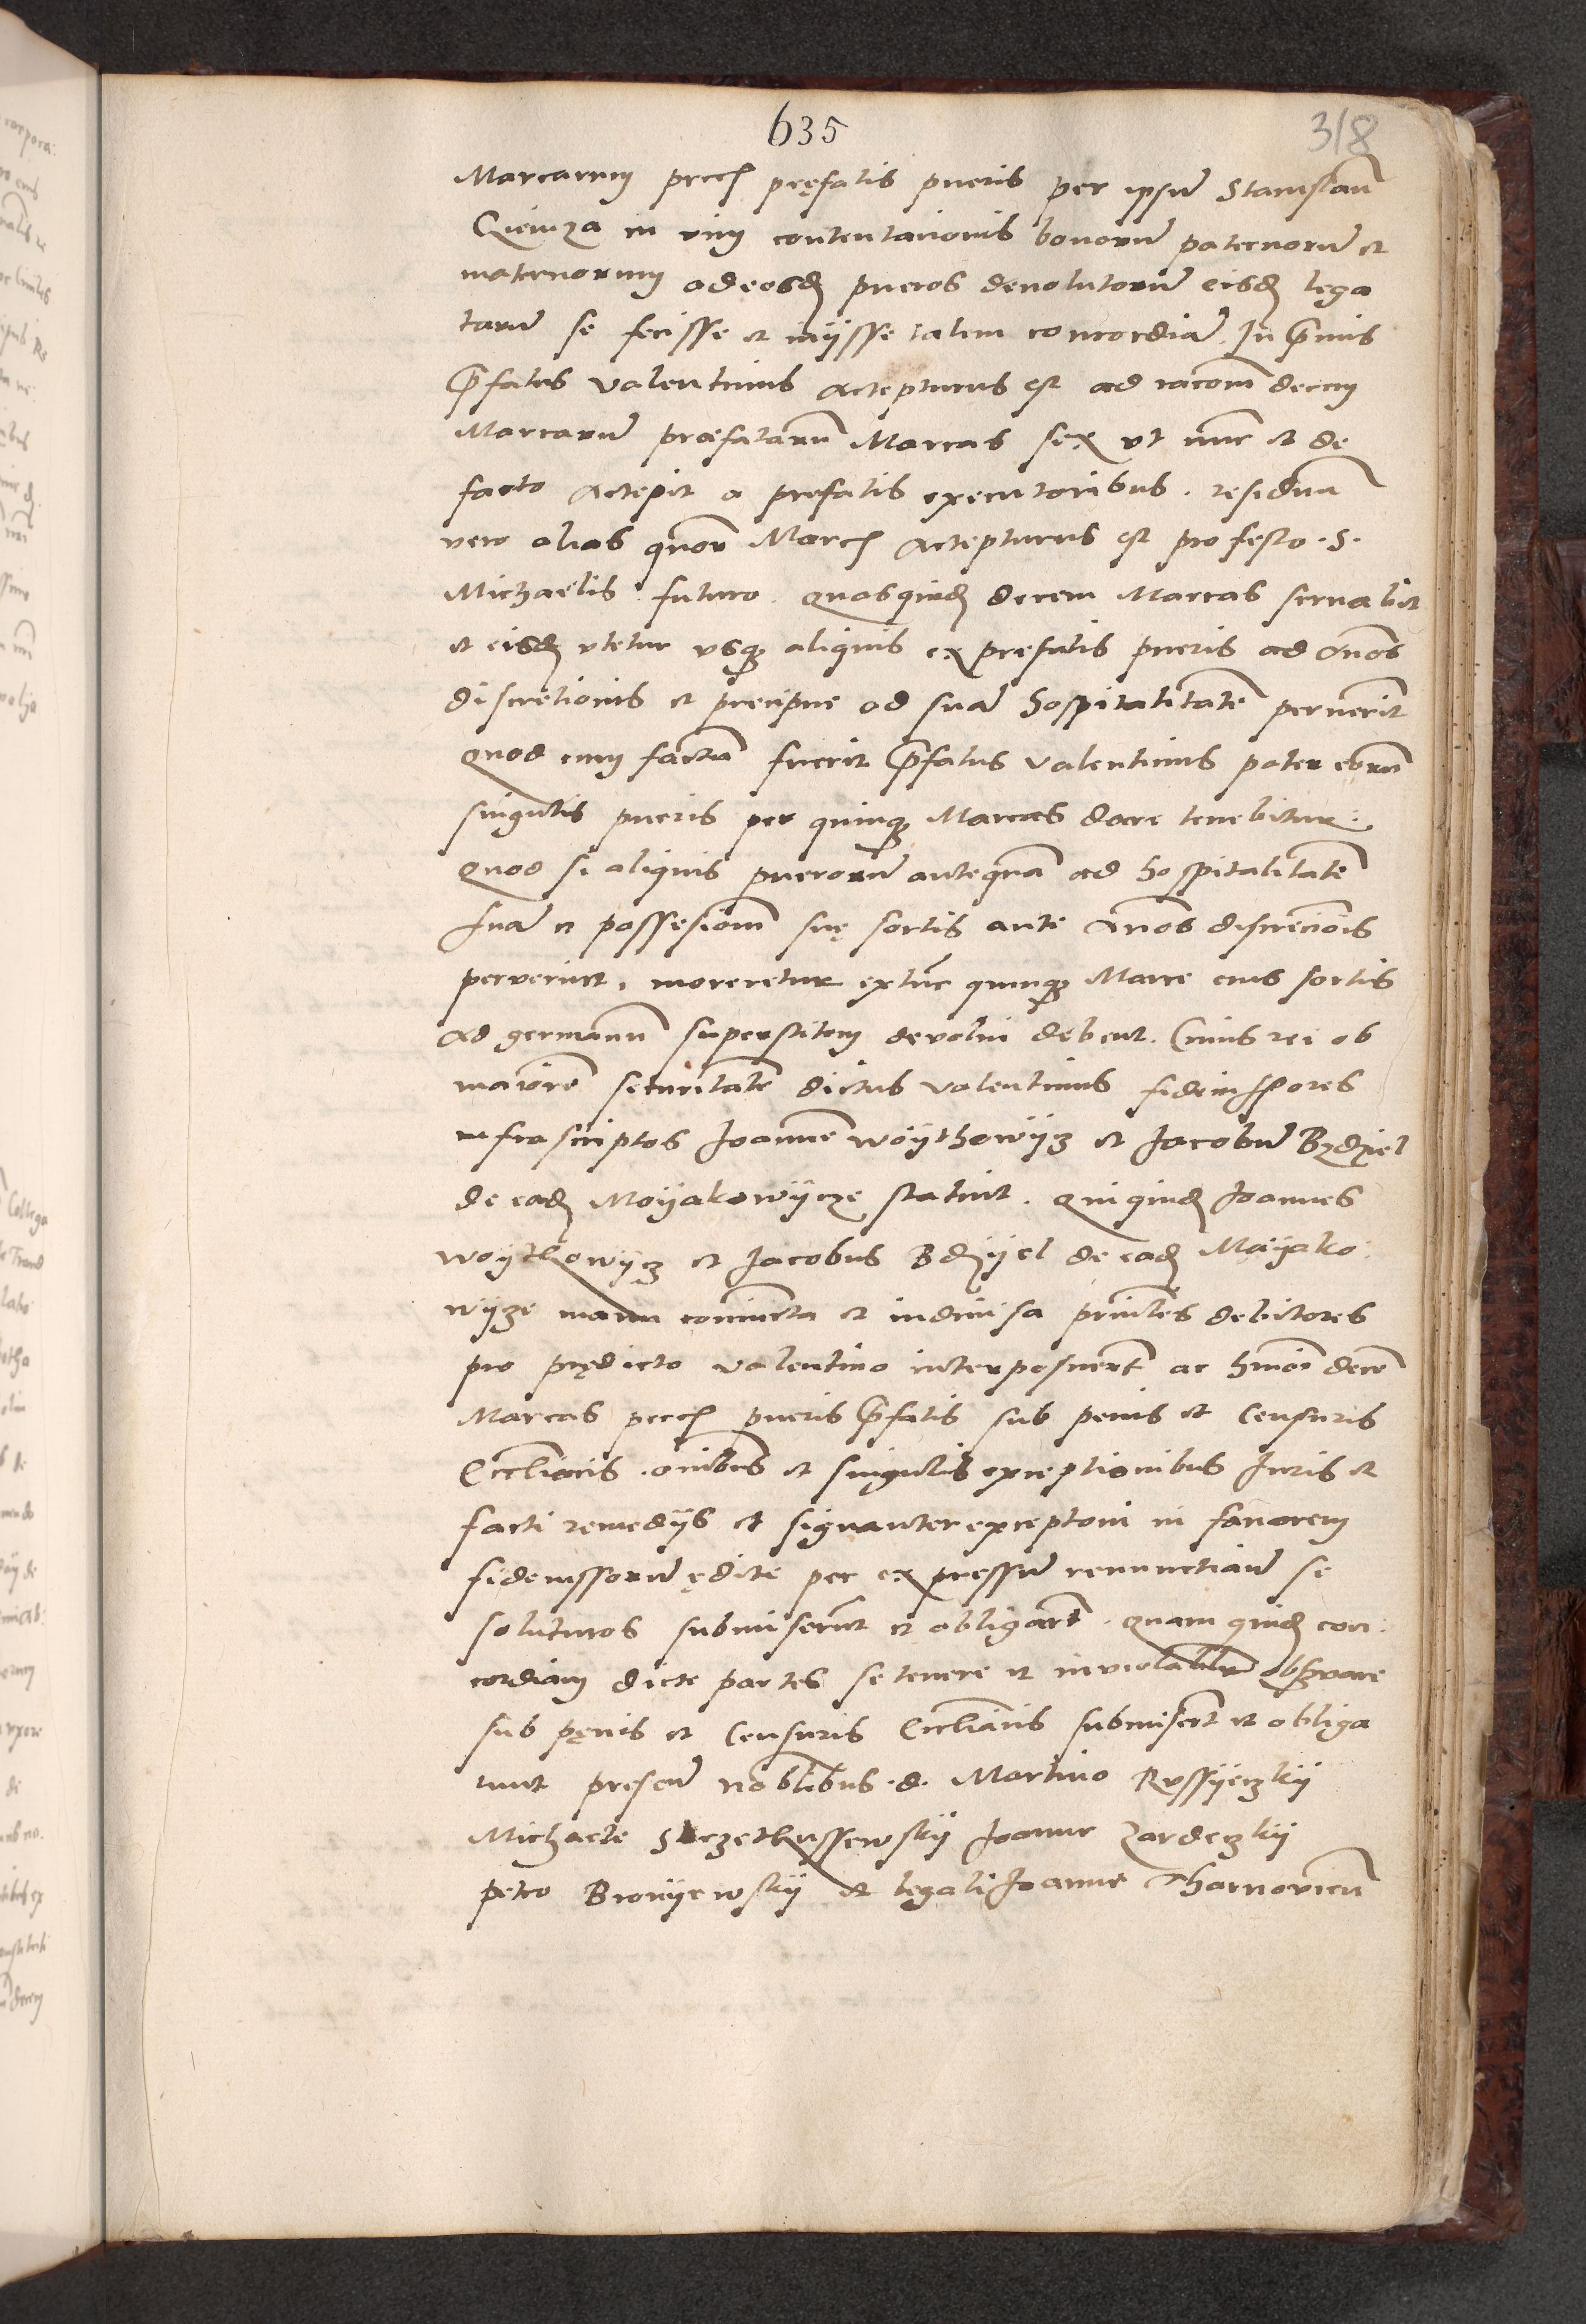 635
318
Marcarum pecch pręfatis pueris per ipsū Stanislaū
Cziewza in vim contentationis bonorū paternorū et
maternorum ad eosd pueros devolutorū eisd lega
tarū se fecisse et inysse talem concordiā. In p̄mis
p̄fatus Valentinus accepturus est ad racōem decem
Marcarū præfatarū Marcas sex ut nunc et de
facto accepit a prefatis executoribus. residua
vero alias quōr March accepturus est pro festo .S.
Michaelis futuro. quasquid decem Marcas servabit
et eisd utetur usq aliquis ex prefatis pueris ad annos
discretionis et precipue ad suā hospitalitatē pervenerit
quod cum factū fuerit p̄fatus Valentinus pater eorū
singulis pueris per quinq Marcas dare tenebitur:
quod si aliquis puerorū antequā ad hospitalitatē
suā et possesionē suę sortis ante annos discrecionis
perveniret, moreretur extūc quinq Marce eius sortis
ad germanū superstitem devolvi debent. Cuius rei ob
maiorē securitatē dictus Valentinus fideiussores
infrascriptos Joannē Woythowycz et Jacobū Bzdziel
de ead Moyakowycze statuit. qui quid Joannes
Woythowycz et Jacobus Bdzyel de ead Moyako:
wyze manu coniuncta et indivisa prīnc̄les debitores
pro prędicto Valentino interposuerūt ac hmōi decē
Marcas pecch pueris p̄fatis sub penis et censuris
Eccl̄iacis. om̄ibus et singulis exceptionibus Juris et
facti remedys et signanter exceptioni in favorem
fideiussorū ędite per expressū renunctiavū se
soluturos submiserūnt et obligarūt. quam quid con:
cordiam dicte partes se tenere et inviolabilr observare
sub pęnis et censuris Eccl̄iacis submiserūt et obliga
runt presentū nobilibus .d. Martino Russyeczky
Michaele Strzethussewsky Joanne Zardeczky
petro Bronyewsky et legali Joanne Tharnovicen̄